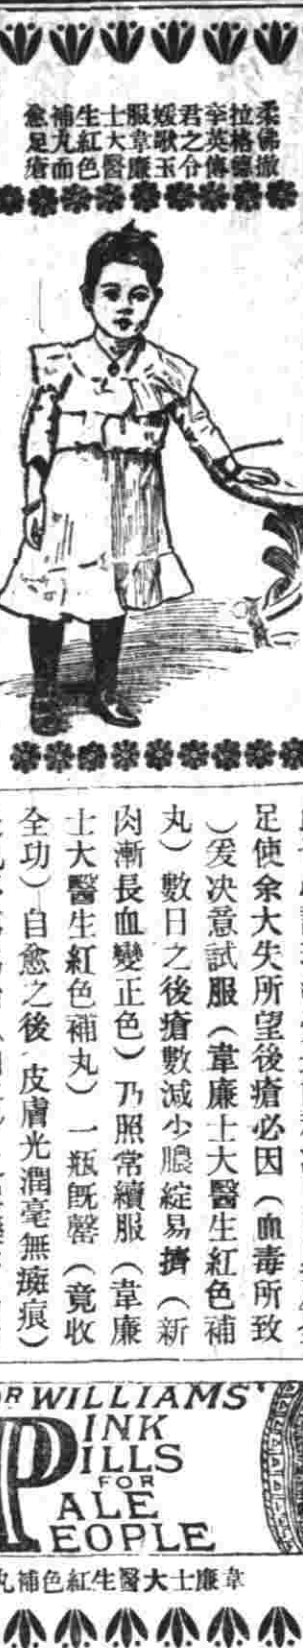 柔佛撒
拉格德
辛英傳
君之令
媛歌玉
服韋廉
士大醫
生紅色
補丸而
愈足瘡
足使余大失所望後瘡必因（血毒所致
）爰决意試服（韋廉士大醫生紅色補
丸）數日之後瘡數減少膿綻易擠（新
肉漸長血變正色）乃照常續服（韋廉
士大醫生紅色補丸）一瓶旣罄（竟收
全功）自愈之後皮膚光潤毫無癍痕）
R WILLIAMS'
PINK
PILLS
FOR
PALE
PEOPLE
韋廉士大醫生紅色補丸